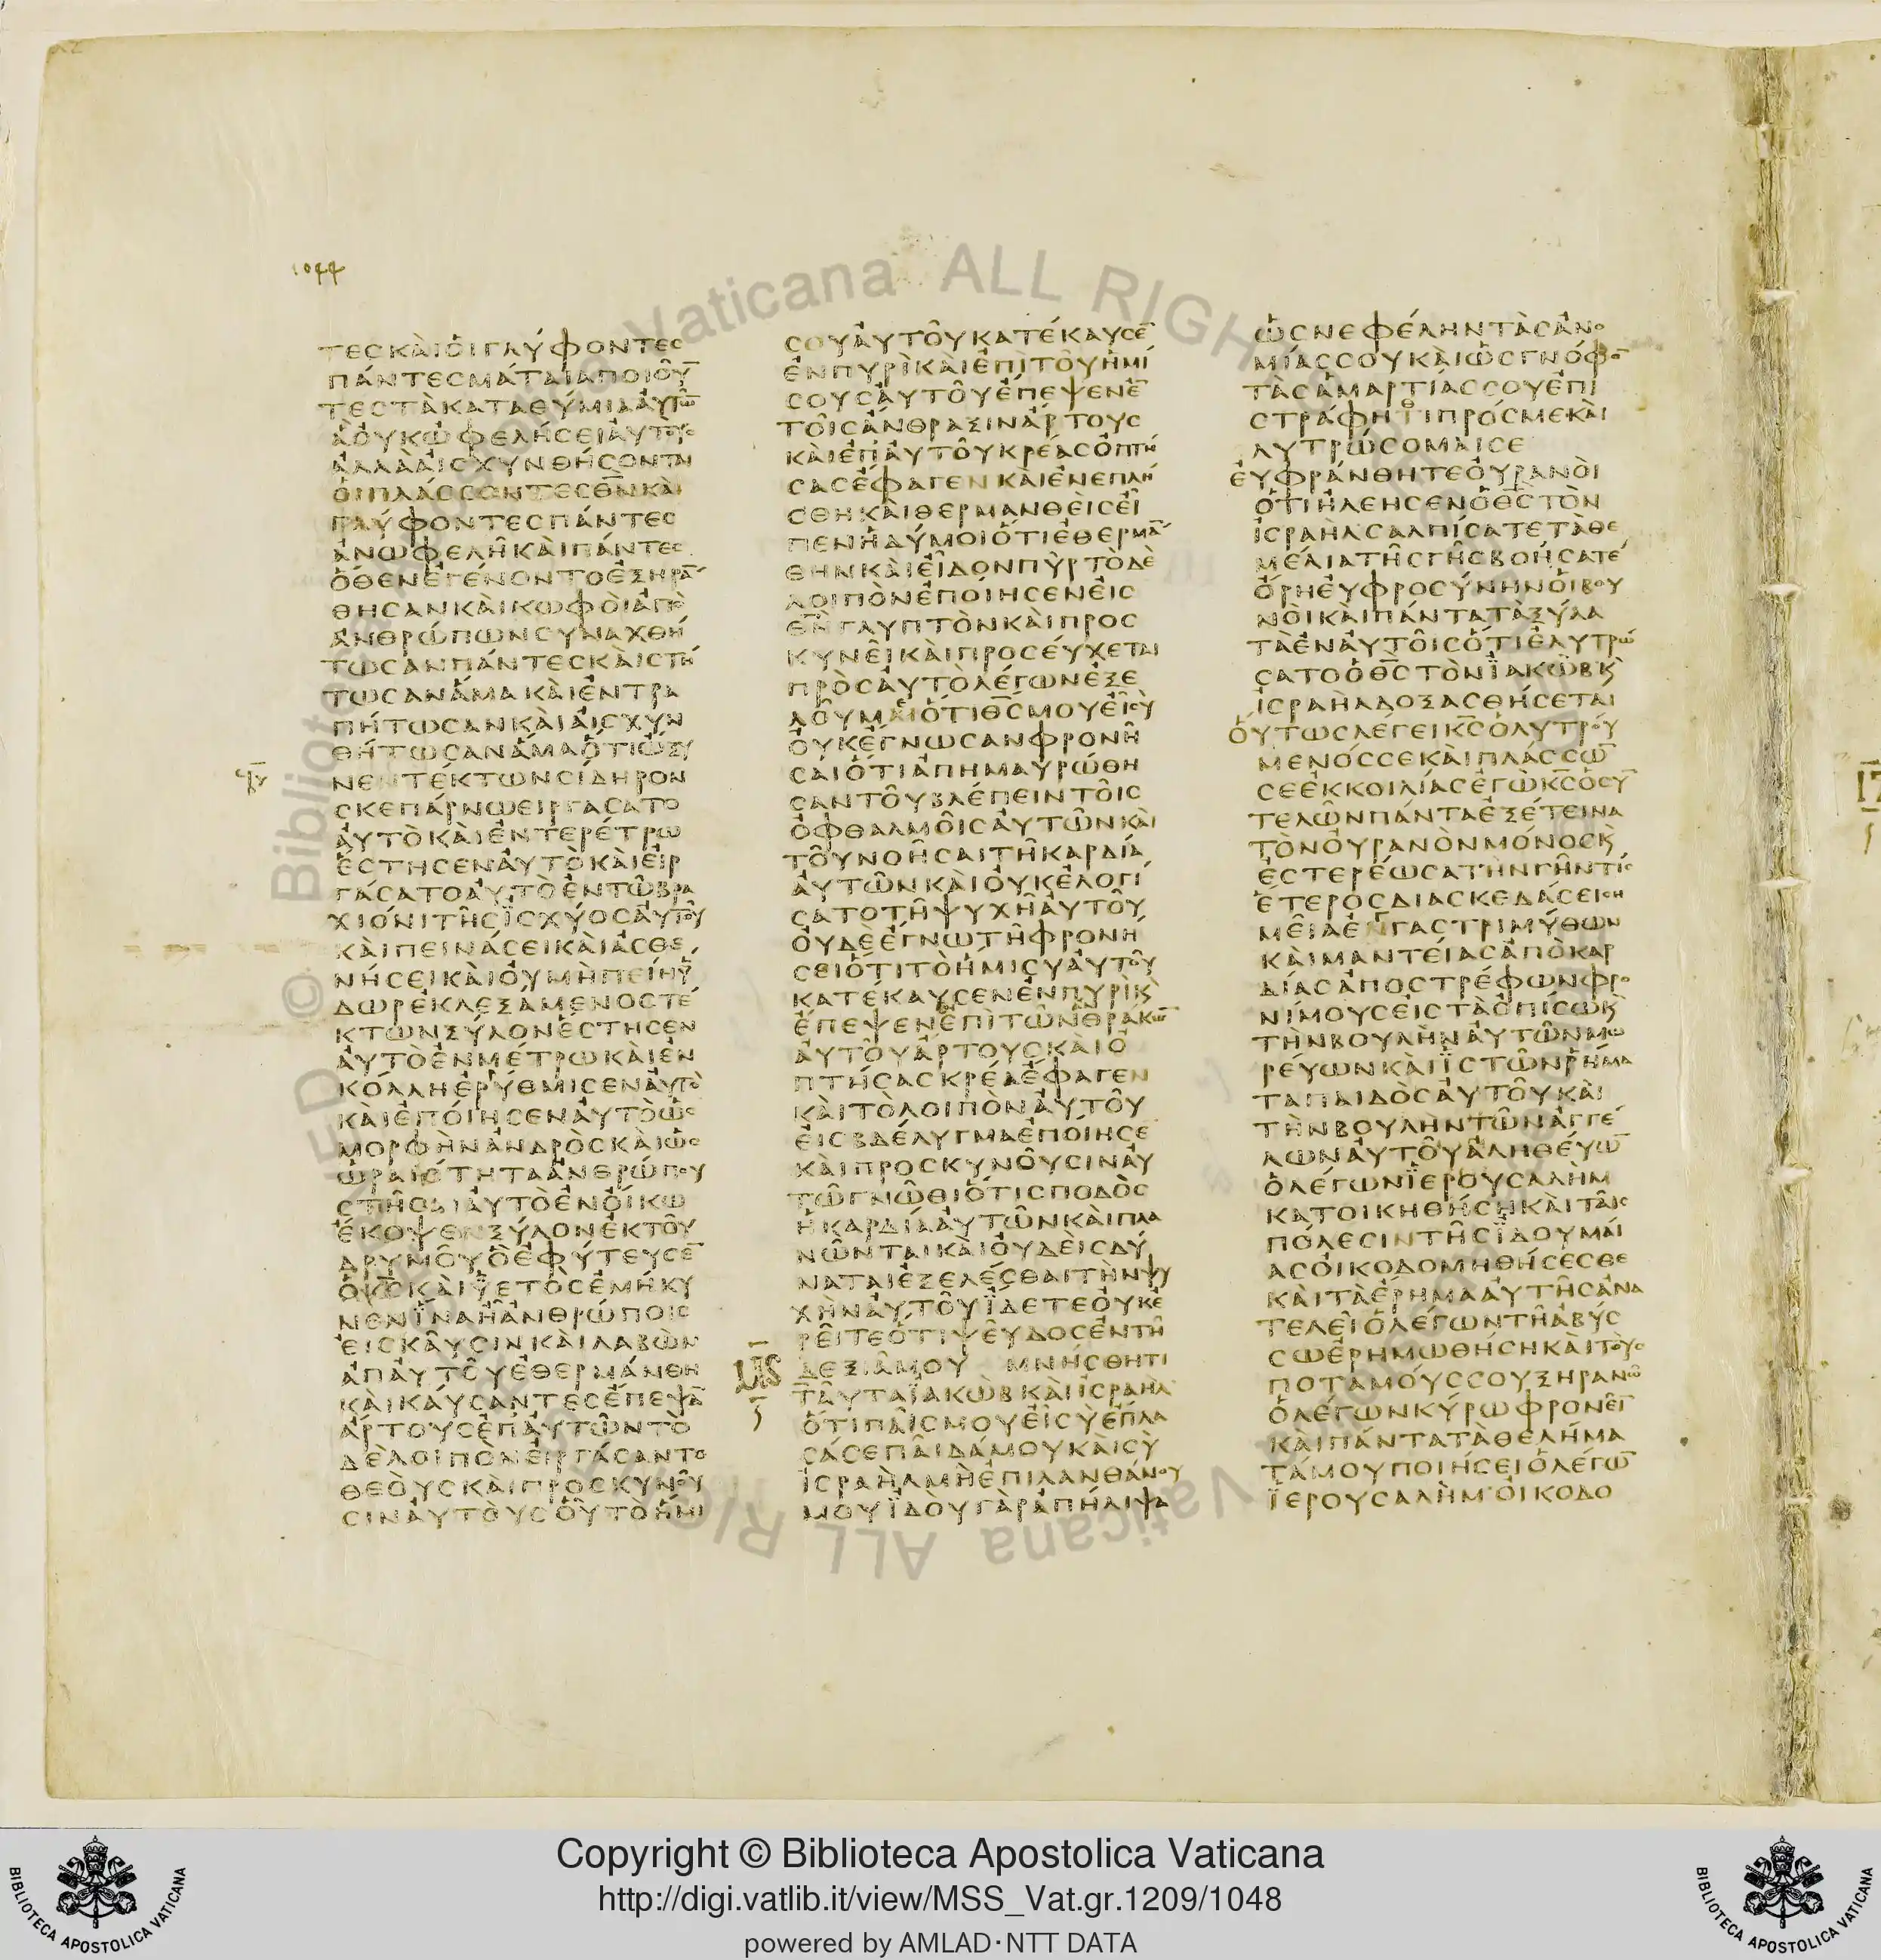 1044
ΤΕCΚΑΙΟΙΓΛΥΦΟΝΤΕC
ΠΑΝΤΕCΜΑΤΑΙΑΠΟΙΟΥ̅
ΤΕCΤΑΚΑΤΑΘΥΜΙΑΑΥΤΩ̅
ΑΟΥΚΩΦΕΛΗCΕΙΑΥΤΟΥC
ΑΛΛΑΑΙCΧΥΝΘΗCΟΝΤΑΙ
ΟΙΠΛΑCCΟΝΤΕCΘ̅Ν̅ΚΑΙ
ΓΛΥΦΟΝΤΕCΠΑΝΤΕC
ΑΝΩΦΕΛΗΚΑΙΠΑΝΤΕC
ΟΘΕΝΕΓΕΝΟΝΤΟΕΞΗΡΑ̅
ΘΗCΑΝΚΑΙΚΩΦΟΙΑΠΟ
ΑΝΘΡΩΠΩΝCΥΝΑΧΘΗ
ΤΩCΑΝΠΑΝΤΕCΚΑΙCΤΗ
ΤΩCΑΝΑΜΑΚΑΙΕΝΤΡΑ
ΠΗΤΩCΑΝΚΑΙΑΙCΧΥΝ
ΘΗΤΩCΑΝΑΜΑΟΤΙΩΞΥ
ΝΕΝΤΕΚΤΩΝCΙΔΗΡΟΝ
CΚΕΠΑΡΝΩΕΙΡΓΑCΑΤΟ
ΑΥΤΟΚΑΙΕΝΤΕΡΕΤΡΩ
ΕCΤΗCΕΝΑΥΤΟΚΑΙΕΙΡ
ΓΑCΑΤΟΑΥΤΟΕΝΤΩΒΡΑ
ΧΙΟΝΙΤΗCΙCΧΥΟCΑΥΤΟΥ
ΚΑΙΠΕΙΝΑCΕΙΚΑΙΑCΘΕ
ΝΗCΕΙΚΑΙΟΥΜΗΠΕΙΗΥ̅
ΔΩΡΕΚΛΕΞΑΜΕΝΟCΤΕ
ΚΤΩΝΞΥΛΟΝΕCΤΗCΕΝ
ΑΥΤΟΕΝΜΕΤΡΩΚΑΙΕΝ
ΚΟΛΛΗΕΡΥΘΜΙCΕΝΑΥΤΟ
ΚΑΙΕΠΟΙΗCΕΝΑΥΤΟΩC
ΜΟΡΦΗΝΑΝΔΡΟCΚΑΙΩC
ΩΡΑΙΟΤΗΤΑΑΝΘΡΩΠΟΥ
CΤΗCΑΙΑΥΤΟΕΝΟΙΚΩ
ΕΚΟΨΕΝΞΥΛΟΝΕΚΤΟΥ
ΔΡΥΜΟΥΟΕΦΥΤΕΥCΕ̅
ΟΚ̅C̅ΚΑΙΥΕΤΟCΕΜΗΚΥ
ΝΕΝΙΝΑΗΑΝΘΡΩΠΟΙC
ΕΙCΚΑΥCΙΝΚΑΙΛΑΒΩΝ
ΑΠΑΥΤΟΥΕΘΕΡΜΑΝΘΗ
ΚΑΙΚΑΥCΑΝΤΕCΕΠΕΨΑ̅
ΑΡΤΟΥCΕΠΑΥΤΩΝΤΟ
ΔΕΛΟΙΠΟΝΕΙΡΓΑCΑΝΤΟ
ΘΕΟΥCΚΑΙΠΡΟCΚΥΝΟΥ
CΙΝΑΥΤΟΥCΟΥΤΟΗΜΙ
CΟΥΑΥΤΟΥΚΑΤΕΚΑΥCΕ̅
ΕΝΠΥΡΙΚΑΙΕΠΙΤΟΥΗΜΙ
CΟΥCΑΥΤΟΥΕΠΕΨΕΝΕ̅
ΤΟΙCΑΝΘΡΑΞΙΝΑΡΤΟΥC
ΚΑΙΕΠΑΥΤΟΥΚΡΕΑCΟΠΤΗ
CΑCΕΦΑΓΕΝΚΑΙΕΝΕΠΛΗ
CΘΗΚΑΙΘΕΡΜΑΝΘΕΙCΕΙ
ΠΕΝΗΔΥΜΟΙΟΤΙΕΘΕΡΜΑ̅
ΘΗΝΚΑΙΕΙΔΟΝΠΥΡΤΟΔΕ
ΛΟΙΠΟΝΕΠΟΙΗCΕΝΕΙC
Θ̅Ν̅ΓΛΥΠΤΟΝΚΑΙΠΡΟC
ΚΥΝΕΙΚΑΙΠΡΟCΕΥΧΕΤΑΙ
ΠΡΟCΑΥΤΟΛΕΓΩΝΕΞΕ
ΛΟΥΜΑΙΟΤΙΘ̅C̅ΜΟΥΕΙCΥ
ΟΥΚΕΓΝΩCΑΝΦΡΟΝΗ
CΑΙΟΤΙΑΠΗΜΑΥΡΩΘΗ
CΑΝΤΟΥΒΛΕΠΕΙΝΤΟΙC
ΟΦΘΑΛΜΟΙCΑΥΤΩΝΚΑΙ
ΤΟΥΝΟΗCΑΙΤΗΚΑΡΔΙΑ
ΑΥΤΩΝΚΑΙΟΥΚΕΛΟΓΙ
CΑΤΟΤΗΨΥΧΗΑΥΤΟΥ
ΟΥΔΕΕΓΝΩΤΗΦΡΟΝΗ
CΕΙΟΤΙΤΟΗΜΙCΥΑΥΤΟΥ
ΚΑΤΕΚΑΥCΕΝΕΝΠΥΡΙϏ
ΕΠΕΨΕΝΕΠΙΤΩΝΘΡΑΚΩ̅
ΑΥΤΟΥΑΡΤΟΥCΚΑΙΟ
ΠΤΗCΑCΚΡΕΑΕΦΑΓΕΝ
ΚΑΙΤΟΛΟΙΠΟΝΑΥΤΟΥ
ΕΙCΒΔΕΛΥΓΜΑΕΠΟΙΗCΕ
ΚΑΙΠΡΟCΚΥΝΟΥCΙΝΑΥ
ΤΩΓΝΩΘΙΟΤΙCΠΟΔΟC
ΗΚΑΡΔΙΑΑΥΤΩΝΚΑΙΠΛΑ
ΝΩΝΤΑΙΚΑΙΟΥΔΕΙCΔΥ
ΝΑΤΑΙΕΞΕΛΕCΘΑΙΤΗΝΨΥ
ΧΗΝΑΥΤΟΥΙΔΕΤΕΟΥΚΕ
ΡΕΙΤΕΟΤΙΨΕΥΔΟCΕΝΤΗ
ΔΕΞΙΑΜΟΥ ΜΝΗCΘΗΤΙ
ΤΑΥΤΑΪΑΚΩΒΚΑΙΙCΡΑΗΛ
ΟΤΙΠΑΙCΜΟΥΕΙCΥΕΠΛΑ
CΑCΕΠΑΙΔΑΜΟΥΚΑΙCΥ
ΙCΡΑΗΛΜΗΕΠΙΛΑΝΘΑΝΟΥ
ΜΟΥΪΔΟΥΓΑΡΑΠΗΛΙΨΑ
ΩCΝΕΦΕΛΗΝΤΑCΑΝΟ
ΜΙΑCCΟΥΚΑΙΩCΓΝΟΦΟ̅
ΤΑCΑΜΑΡΤΙΑCCΟΥΕΠΙ
CΤΡΑΦΗΤΙΠΡΟCΜΕΚΑΙ
ΛΥΤΡΩCΟΜΑΙCΕ
ΕΥΦΡΑΝΘΗΤΕΟΥΡΑΝΟΙ
ΟΤΙΗΛΕΗCΕΝΟΘ̅C̅ΤΟΝ
ΙCΡΑΗΛCΑΛΠΙCΑΤΕΤΑΘΕ
ΜΕΛΙΑΤΗCΓΗCΒΟΗCΑΤΕ
ΟΡΗΕΥΦΡΟCΥΝΗΝΟΙΒΟΥ
ΝΟΙΚΑΙΠΑΝΤΑΤΑΞΥΛΑ
ΤΑΕΝΑΥΤΟΙCΟΤΙΕΛΥΤΡΩ
CΑΤΟΟΘ̅C̅ΤΟΝΪΑΚΩΒϏ
ΙCΡΑΗΛΔΟΞΑCΘΗCΕΤΑΙ
ΟΥΤΩCΛΕΓΕΙΚ̅C̅ΟΛΥΤΡΟΥ
ΜΕΝΟCCΕΚΑΙΠΛΑCCΩ̅
CΕΕΚΚΟΙΛΙΑCΕΓΩΚ̅C̅ΟCΥ̅
ΤΕΛΩΝΠΑΝΤΑΕΞΕΤΕΙΝΑ
ΤΟΝΟΥΡΑΝΟΝΜΟΝΟCϏ
ΕCΤΕΡΕΩCΑΤΗΝΓΗΝΤΙC
ΕΤΕΡΟCΔΙΑCΚΕΔΑCΕΙCΗ
ΜΕΙΑΕΝΓΑCΤΡΙΜΥΘΩΝ
ΚΑΙΜΑΝΤΕΙΑCΑΠΟΚΑΡ
ΔΙΑCΑΠΟCΤΡΕΦΩΝΦΡΟ
ΝΙΜΟΥCΕΙCΤΑΟΠΙCΩϏ
ΤΗΝΒΟΥΛΗΝΑΥΤΩΝΜΩ
ΡΕΥΩΝΚΑΙΪCΤΩΝΡΗΜΑ
ΤΑΠΑΙΔΟCΑΥΤΟΥΚΑΙ
ΤΗΝΒΟΥΛΗΝΤΩΝΑΓΓΕ
ΛΩΝΑΥΤΟΥΑΛΗΘΕΥΩ̅
ΟΛΕΓΩΝΪΕΡΟΥCΑΛΗΜ
ΚΑΤΟΙΚΗΘΗCΗΚΑΙΤΑΙC
ΠΟΛΕCΙΝΤΗCΪΔΟΥΜΑΙ
ΑCΟΙΚΟΔΟΜΗΘΗCΕCΘΕ
ΚΑΙΤΑΕΡΗΜΑΑΥΤΗCΑΝΑ
ΤΕΛΕΙΟΛΕΓΩΝΤΗΑΒΥC
CΩΕΡΗΜΩΘΗCΗΚΑΙΤΟΥC
ΠΟΤΑΜΟΥCCΟΥΞΗΡΑΝΩ
ΟΛΕΓΩΝΚΥΡΩΦΡΟΝΕΙ̅
ΚΑΙΠΑΝΤΑΤΑΘΕΛΗΜΑ
ΤΑΜΟΥΠΟΙΗCΕΙΟΛΕΓΩ̅
ΪΕΡΟΥCΑΛΗΜΟΙΚΟΔΟ
Copyright © Biblioteca Apostolica Vaticana
http://digi.vatlib.it/view/MSS_Vat.gr.1209/1048
powered by AMLAD·NTT DATA
BIBLIOTECA APOSTOLICA VATICANA
BIBLIOTECA APOSTOLICA VATICANA